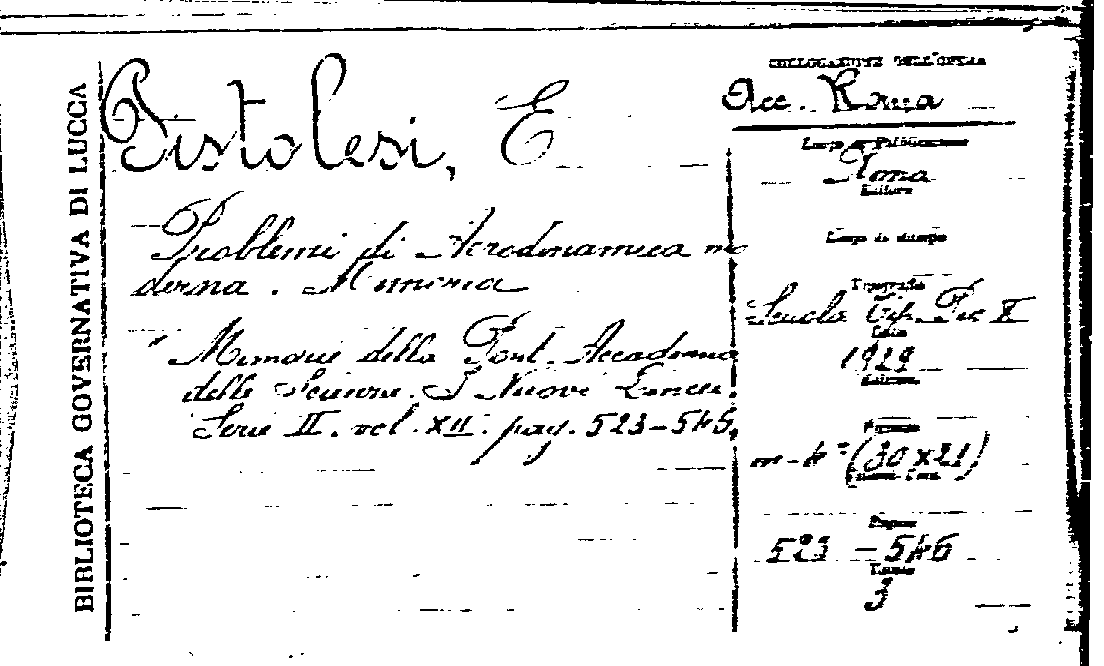 BIBLIOTECA GOVERNATIVA DI LUCCA
Pistolesi, E
Problemi di Aerodinamica mo
derna. Memoria
Memorie della Pont. Accademia
delle Scienze. I Nuovi Lincei.
Serie II. vol. XII. pag. 523-546.
COLLOCAZIONE DELL'OPERA
Acc. Roma
Luogo di Pubblicazione
Roma
Editore
Luogo di stampa
Tipografia
Scuola Tip. Pio X
Data
1929
Edizione
Formato
in-4° (30x21)
Pagine
523-546
3